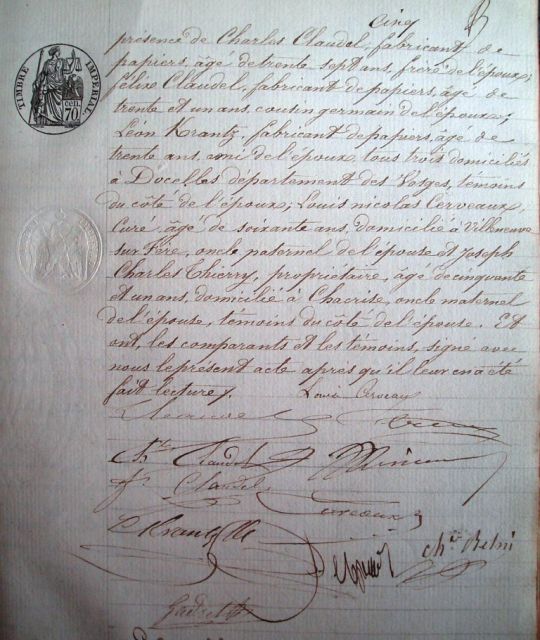 cinq
présence de Charles Claudel, fabricant de
papiers, âgé de trente sept ans, frère de l'époux;
félix Claudel, fabricant de papiers, âgé de
trente et un ans, cousin germain de l'époux;
Léon Krantz, fabricant de papiers, âgé de
trente ans, ami de l'époux, tous trois domiciliés
à Docelles département des Vosges, témoins
du côté de l'époux; Louis nicolas Cerveaux,
Curé, âgé de soixante ans, domicilié à Villeneuve
sur Fère, oncle paternel de l'épouse et Joseph
Charles Thierry, propriétaire, âgé de cinquante
et un ans, domicilié à Chacrise, oncle maternel
de l'épouse, témoins du côté de l'épouse. Et
ont, les comparants et les témoins, signé avec
nous le présent acte après qu'il leur en a été
fait lecture.
TIMBRE IMPERIAL
70 CEN.
Louis Cerveaux
Ch. Claudel
f. Claudel
Cerveaux
L Krantz